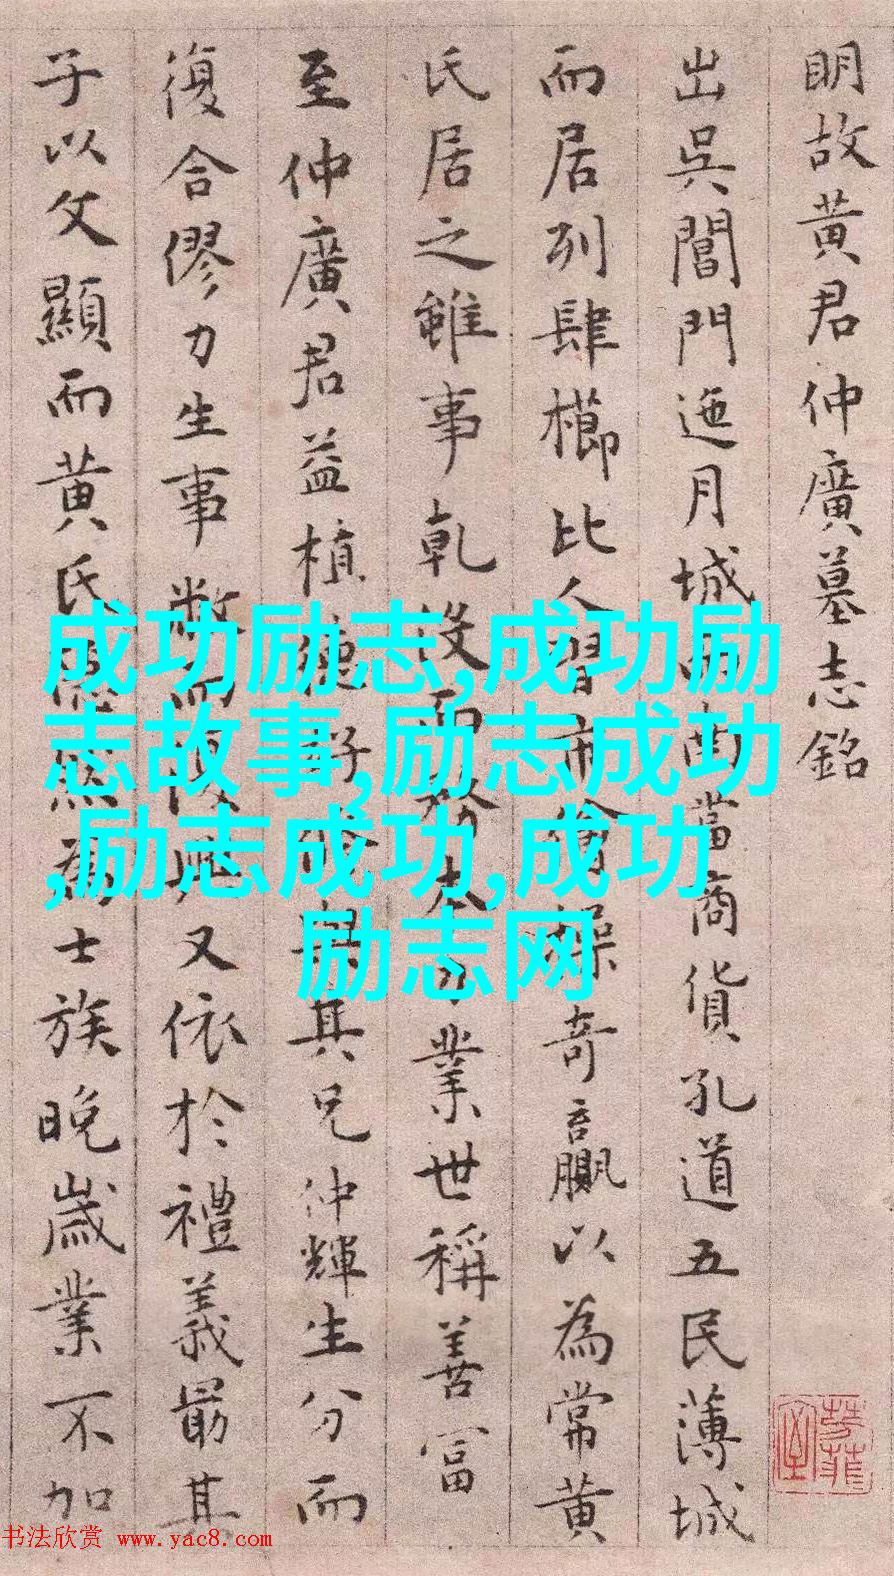 明故黄君仲廣墓志銘
出吳閶門迤月城而南當商貨孔道五民薄城
而居列肆櫛比人習市會操奇贏以為常黄
氏居之雖事乾没而務本力業世稱善富
至仲廣君益植德好脩與其兄仲輝生分而
復合僇力生事敝而復興又依於禮義最其
子以文顯而黄氏隱然為士族晚歲業不加
成功励志,成功励
志故事,励志成功
,励志成功,成功
励志网
书法欣赏 www.yac8.com